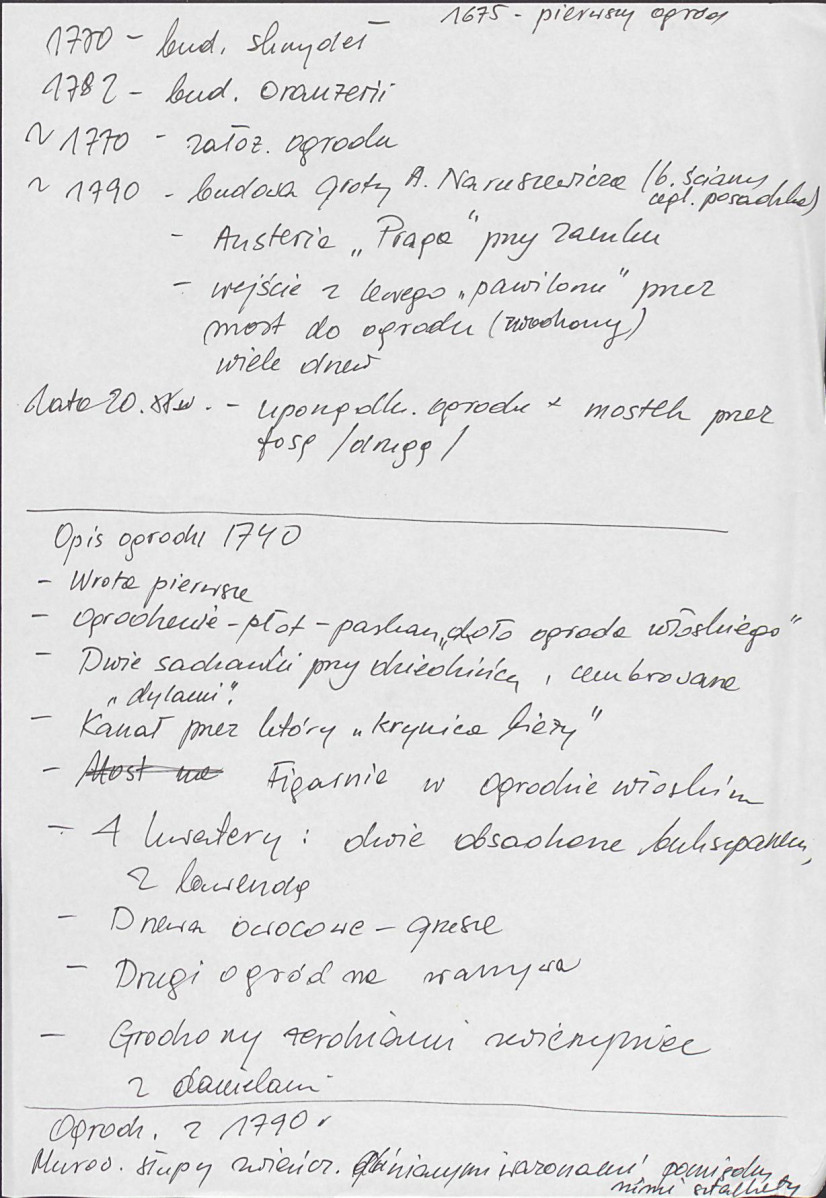 1675 - pierwszy ogród
1770 - bud. skrzydeł
1782 - bud. Oranżerii
~ 1770 - załoz. ogrodu
~ 1790 - budowa groty A. Naruszewicza (b. ściany
cegl. posadzka)
- Austeria „Praga" przy zamku
- wejście z lewego „pawilonu" przez
most do ogrodu (zwodzony)
wiele drzew
Lata 20. XX w. - uporządk. ogrodu + mostek przez
fosę /drugą/
Opis ogrodu 1740
- Wrota pierwsze
- Ogrodzenie - płot - parkan „koło ogroda włoskiego"
- Dwie sadzawki przy dziedzińcu, cembrowane
„dylami".
- Kanał przez który „krynica bieży"
- Most na Figarnia w Ogrodzie włoskim
- 4 kwatery : dwie obsadzone bukszpanem,
z lawendą
- Drzewa owocowe - grusze
- Drugi ogród na warzywa
- Grodzony żerdziami zwierzyniec
z danielami
Ogrodz. z 1790 r
Murow. słupy zwieńcz. glinianymi wazonami pomiędzy
nimi sztachety